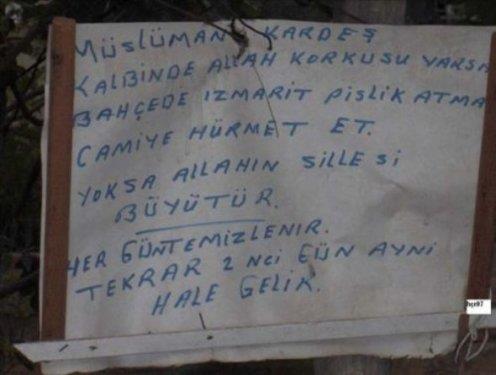 MÜSLÜMAN KARDEŞ
KALBİNDE ALLAH KORKUSU VARSA
BAHÇEDE IZMARİT PİSLİK ATMA
CAMİYE HÜRMET ET.
YOKSA ALLAHIN SİLLESİ
BÜYÜTÜR.
HER GÜNTEMİZLENIR.
TEKRAR 2 NCİ GÜN AYNI
HALE GELİR.